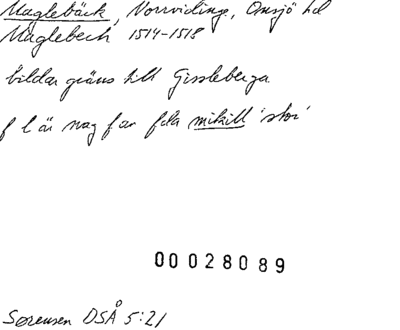 Maglebäck, Norrvidinge, Onsjö hd
Maglebech 1514-1518
bildar gräns till Gissleberga
f l är nag f an fda mikill 'stor'
00028089
Sørensen DSÅ 5:21